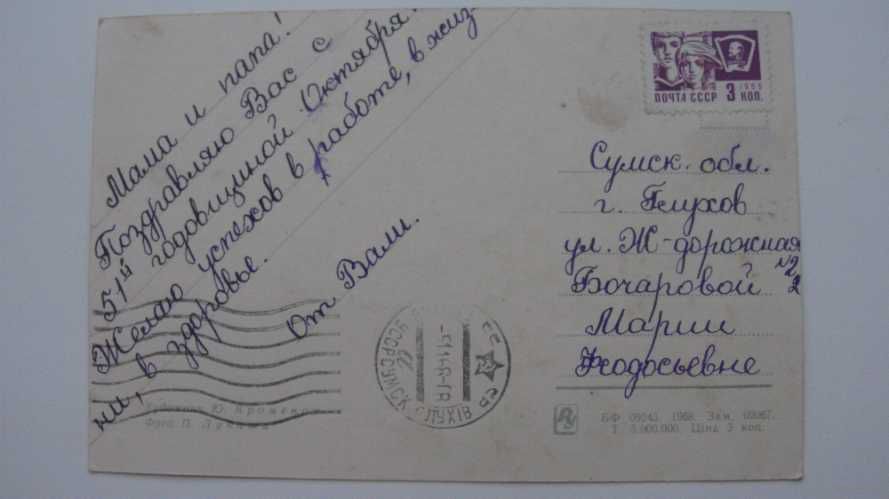 Мама и папа!
Поздравляю Вас с
51ой годовщиной Октября.
Желаю успехов в работе, в жиз-
ни, в здоровье.
От Вали.
ПОЧТА СССР 3 КОП.
1966
Сумск. обл.
г. Глухов
ул. Ж-дорожная
№2
Бочаровой 2
Марии
Федосьевне
ГЛУХІВ
Художник Ю.
Фото П.
БФ 09243. 1968. Зам. 02067.
Т. 5.000.000. Ціна 3 коп.